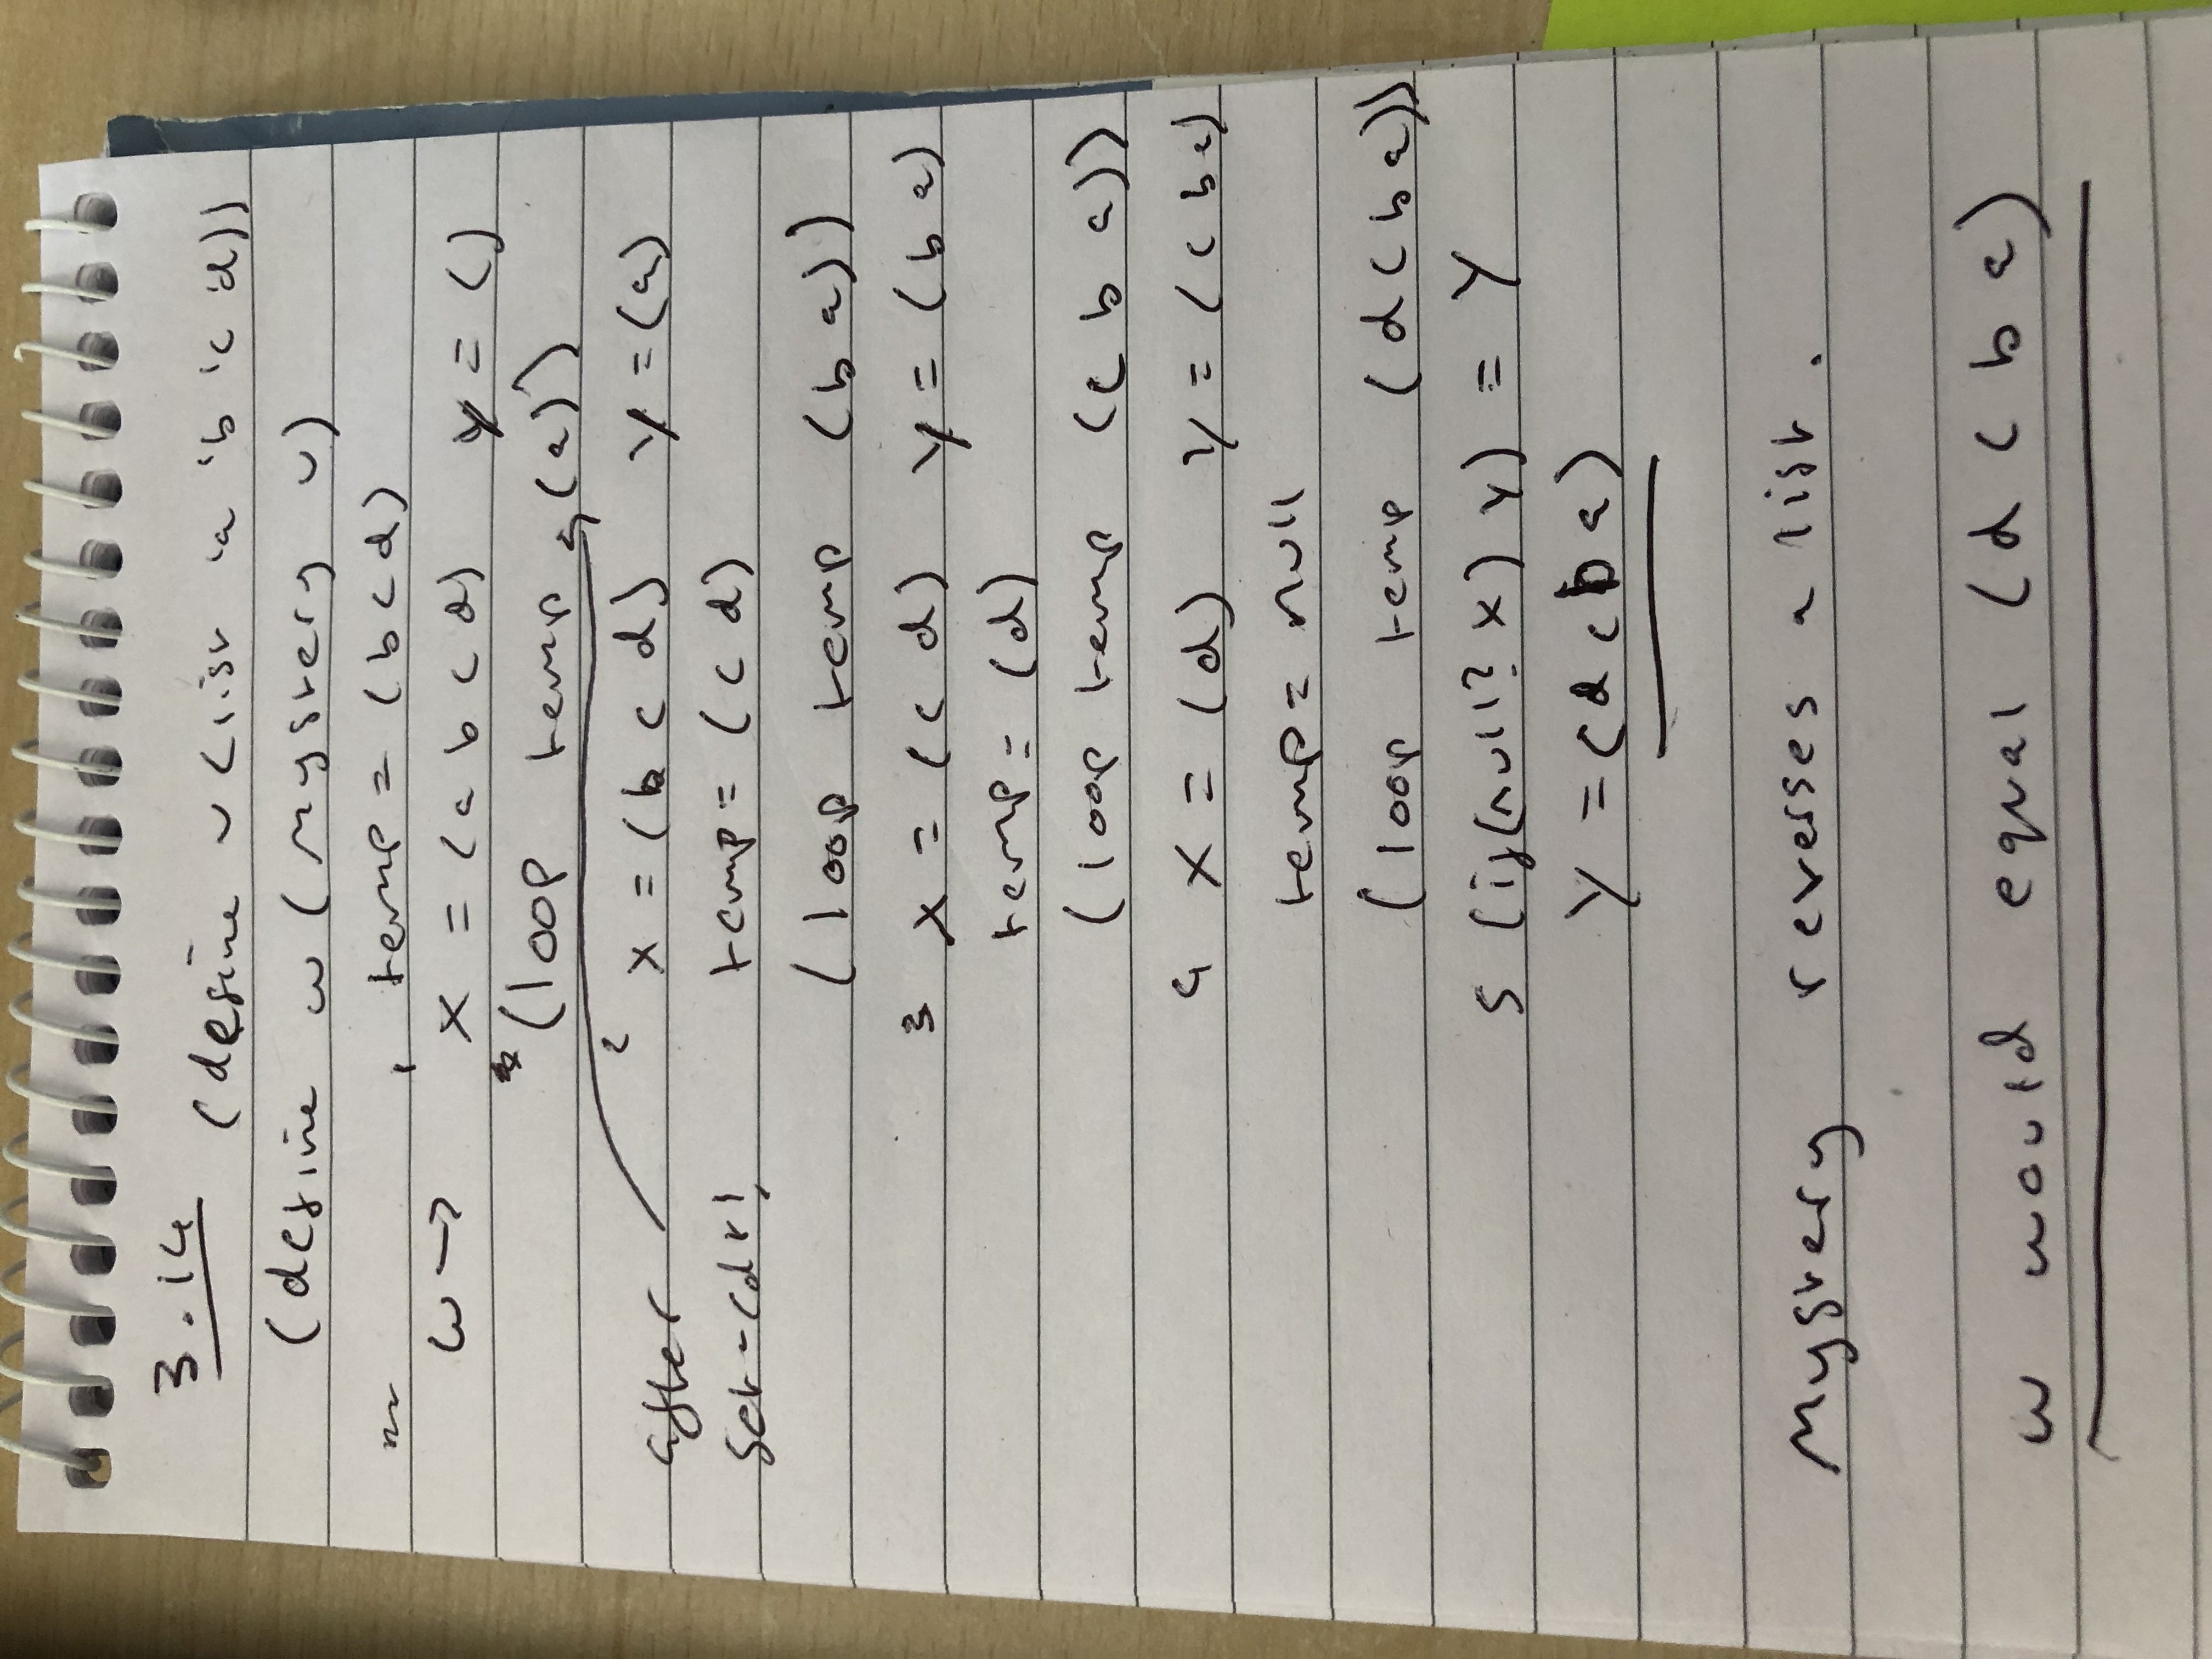 3.14
(define v (list 'a 'b 'c 'd))
(define w (mystery v)
1 temp = (b c d)
w → x = (a b c d) y = ()
(loop temp (a))
after
set-cdr!
2 x = (b c d) y = (a)
temp = (c d)
(loop temp (b a))
3 x = (c d) y = (b a)
temp = (d)
(loop temp (c b a))
4 x = (d) y = (c b a)
temp = null
(loop temp (d c b a))
5 (if (null? x) y) = y
y = (d c b a)
Mystery reverses a list.
w would equal (d c b a)